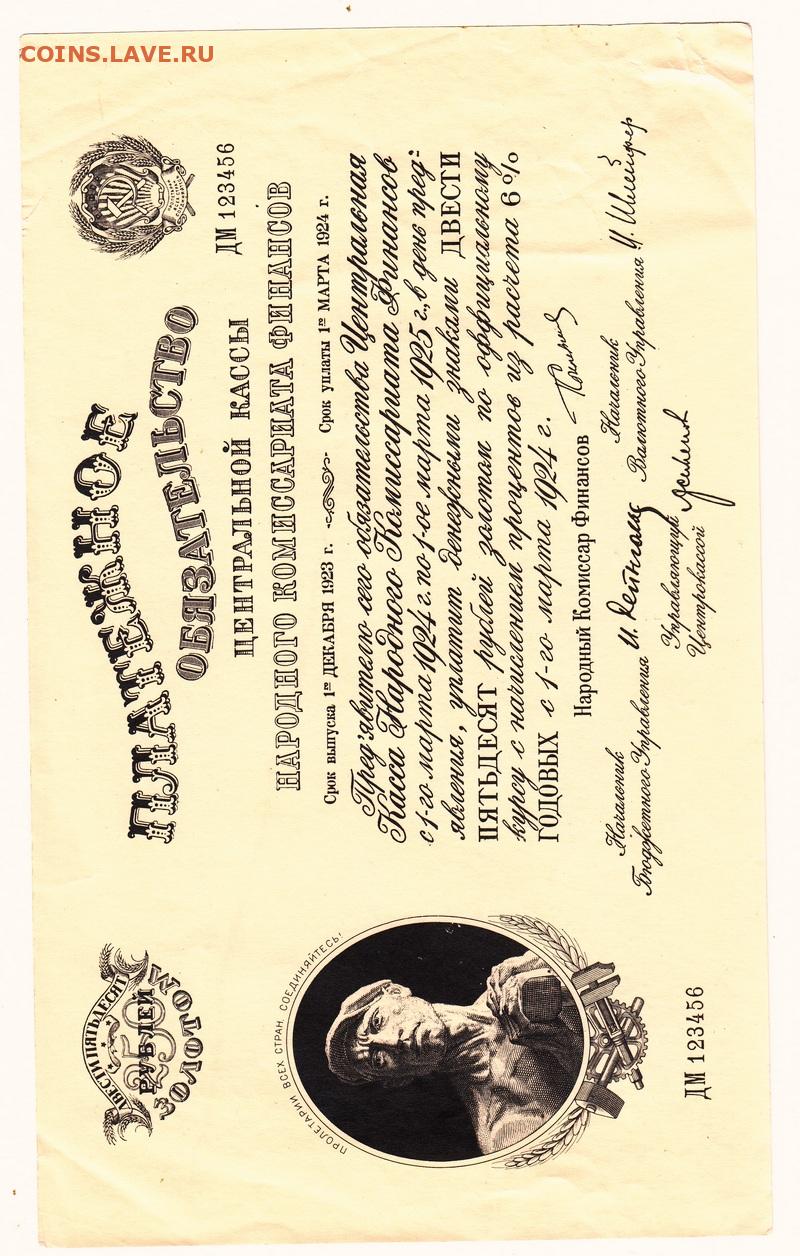 COINS.LAVE.RU
ДВЕСТИПЯТЬДЕСЯТ
250
РУБЛЕЙ
ЗОЛОТОМ
ПЛАТЕЖНОЕ
ОБЯЗАТЕЛЬСТВО
ЦЕНТРАЛЬНОЙ КАССЫ
ДМ 123456
НАРОДНОГО КОМИССАРИАТА ФИНАНСОВ
Срок выпуска 1го ДЕКАБРЯ 1923 г. Срок уплаты 1го МАРТА 1924 г.
Пред'явителю сего обязательства Центральная
Касса Народного Комиссариата Финансов
с 1-го марта 1924 г. по 1-ое марта 1925 г., в день пред-
явления, уплатит денежными знаками ДВЕСТИ
ПЯТЬДЕСЯТ рублей золотом по оффициальному
курсу с начислением процентов из расчета 6%
ГОДОВЫХ с 1-го марта 1924 г.
Народный Комиссар Финансов
Начальник
Бюджетного Управления И. Рейнгольд
Начальник
Валютного Управления И. Шлейфер
Управляющий
Центрокассой
ПРОЛЕТАРИИ ВСЕХ СТРАН, СОЕДИНЯЙТЕСЬ!
ДМ 123456